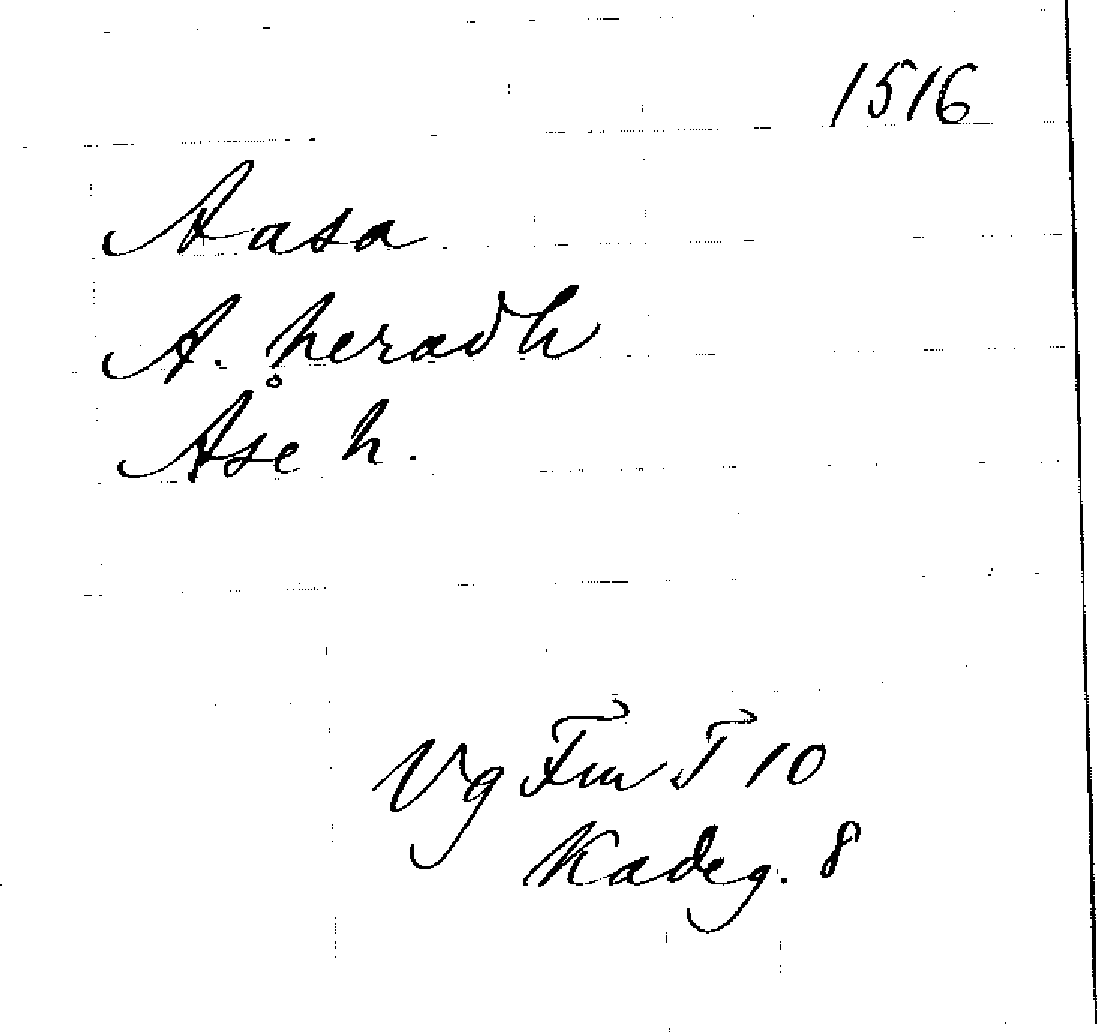 1516
Aasa
A. heradh
Åse h.
Vg Fru T 10
Kadeg. 8